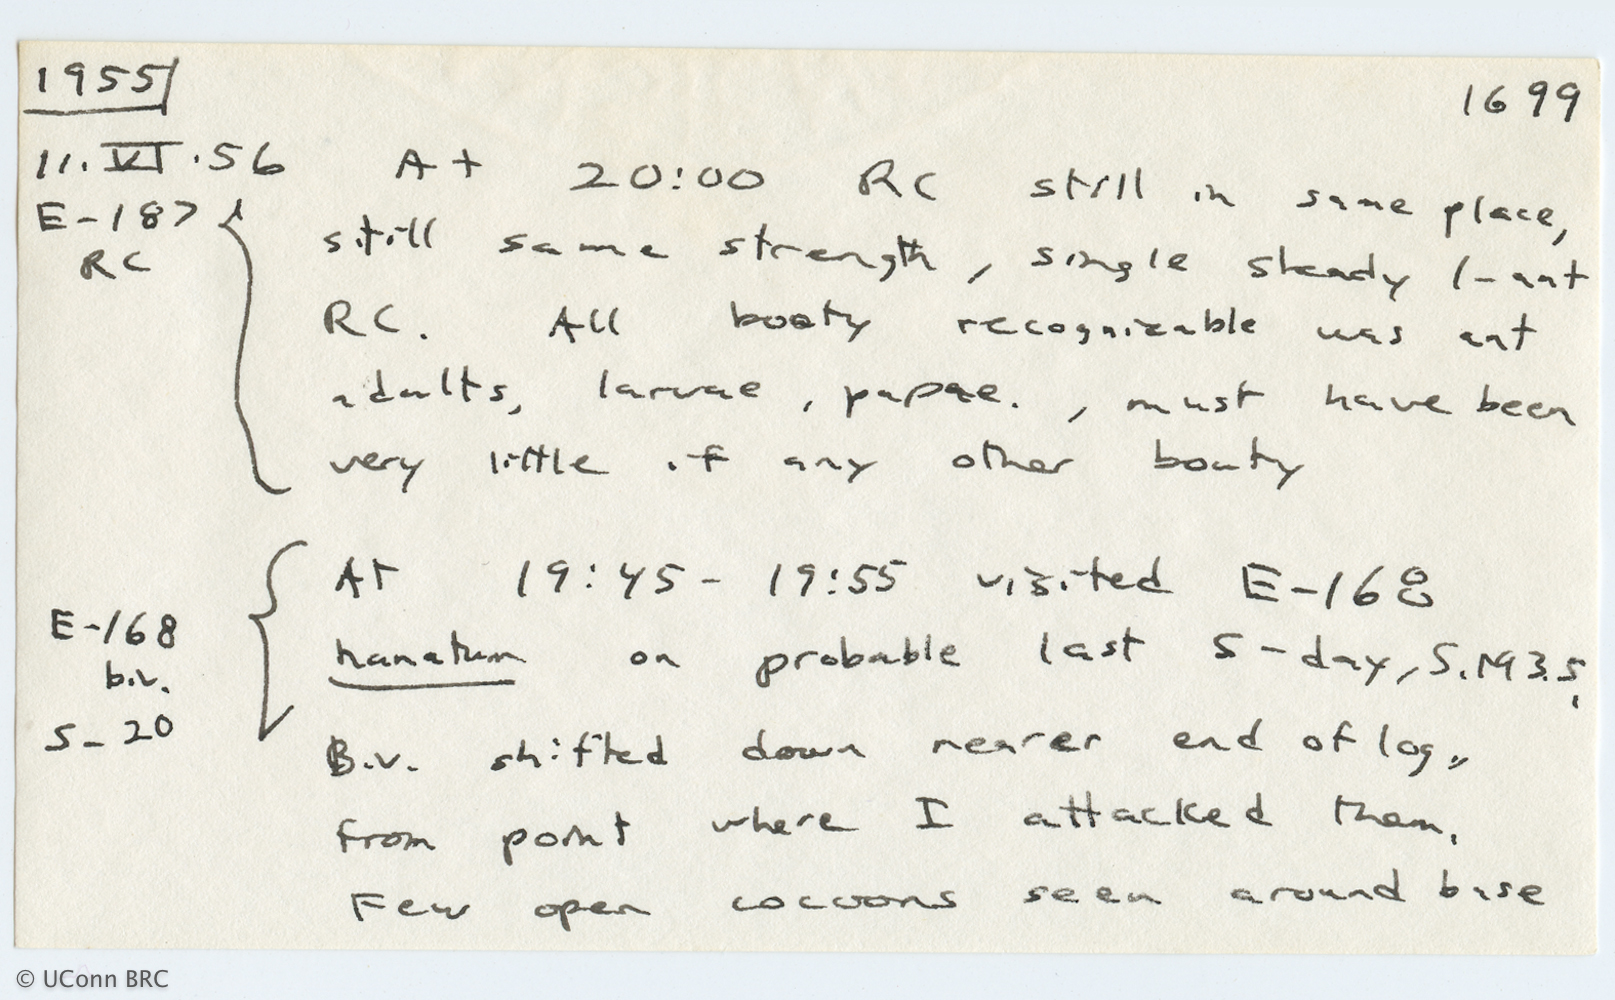 1955
1699
11.VI.56
At 20:00 RC still in same place,
E-187
RC
still same strength, single steady 1-ant
RC. All booty recognizable was ant
adults, larvae, pupae., must have been
very little if any other booty
At 19:45-19:55 visited E-168
E-168
b.v.
S-20
hamatum on probable last S-day,
B.v. shifted down nearer end of log,,
from point where I attacked them.
Few open cocoons seen around base
© UConn BRC